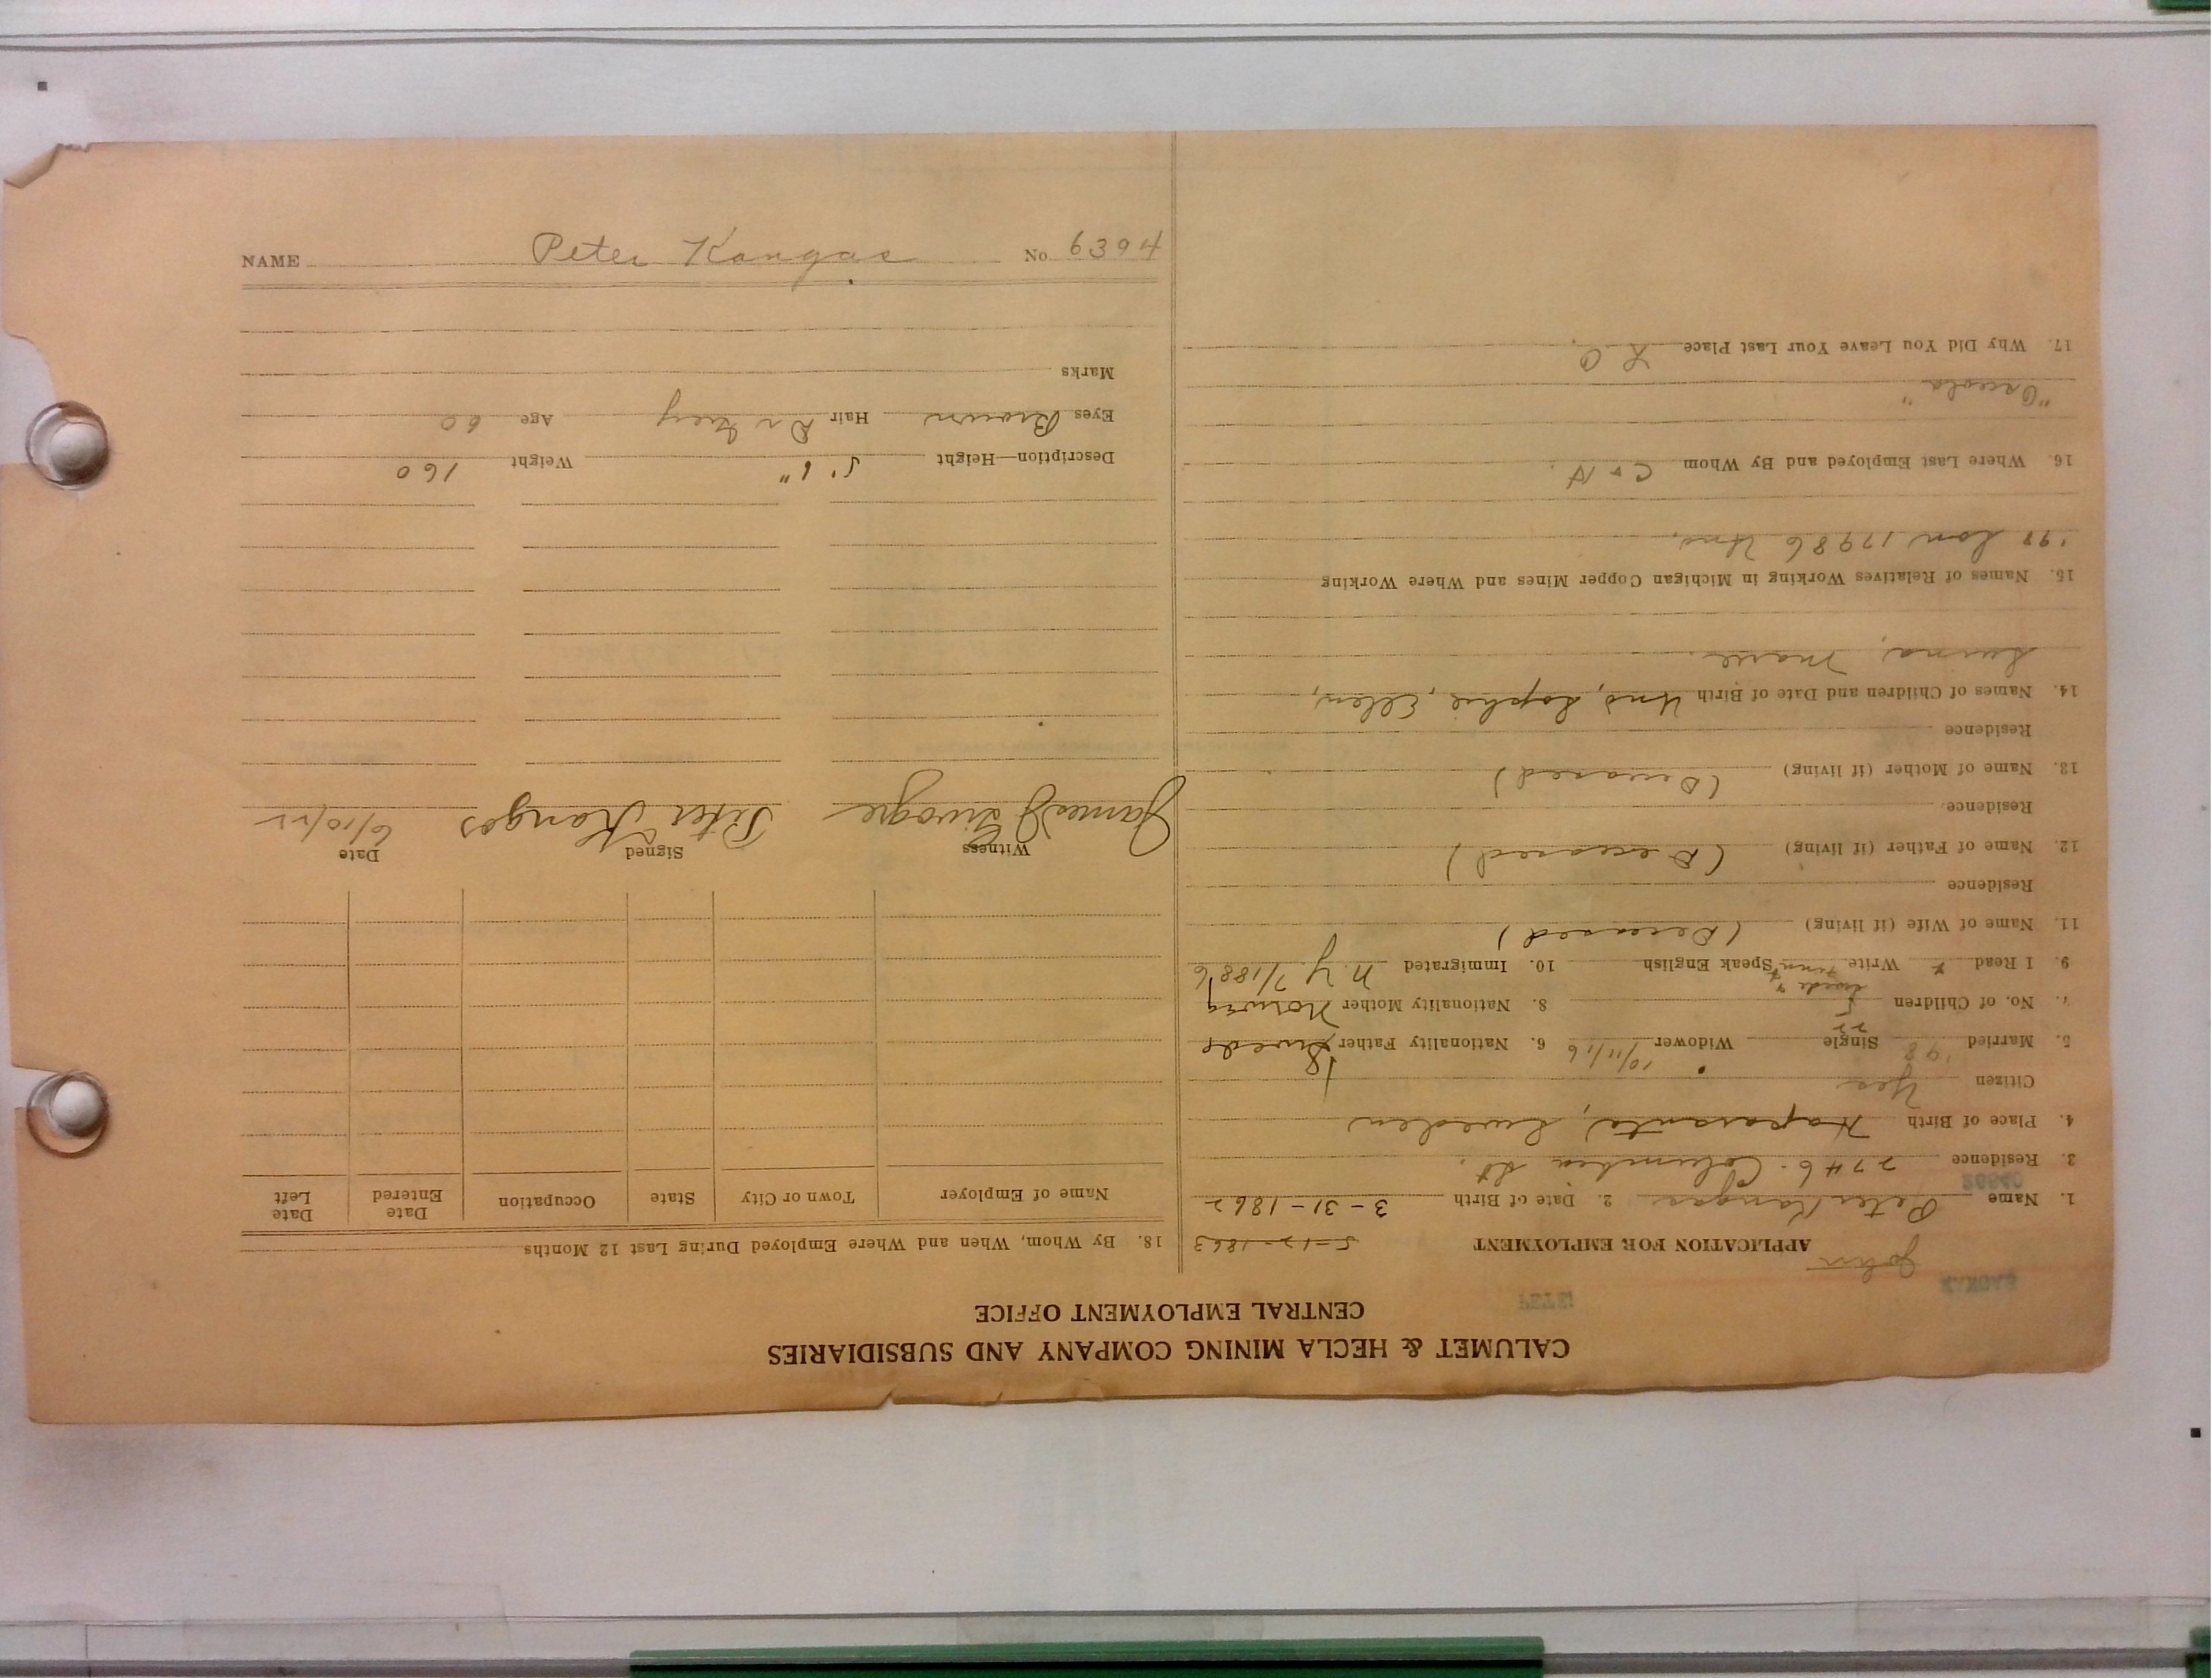 CALUMET & HECLA MINING COMPANY AND SUBSIDIARIES
CENTRAL EMPLOYMENT OFFICE
APPLICATION FOR EMPLOYMENT 5-12-1863
John
1. Name Peter Kangas 2. Date of Birth 3-31-1862
3. Residence 2746 Columbia St.
4. Place of Birth Haparanta, Sweden
Citizen Yes
5. Married '98 Single Widower 10/11/16 6. Nationality Father Swede
7. No. of Children 5 8. Nationality Mother Norweg
Swede &
9. I Read x Write Finn x Speak English 10. Immigrated N.Y. 7/1886
11. Name of Wife (if living) (Deceased)
Residence
12. Name of Father (if living) (Deceased)
Residence
13. Name of Mother (if living) (Deceased)
Residence
14. Names of Children and Date of Birth Uno, Sophie, Ellen,
Marie.
15. Names of Relatives Working in Michigan Copper Mines and Where Working
'98 Son 12986 Uno.
16. Where Last Employed and By Whom C & H.
"Osceola"
17. Why Did You Leave Your Last Place L O.
18. By Whom, When and Where Employed During Last 12 Months
Name of Employer Town or City State Occupation Date Entered Date Left
Witness Signed Date
Peter Kangas 6/10/22
Description—Height 5' 6" Weight 160
Eyes Brown Hair Dr Grey Age 60
Marks
NAME Peter Kangas No. 6394